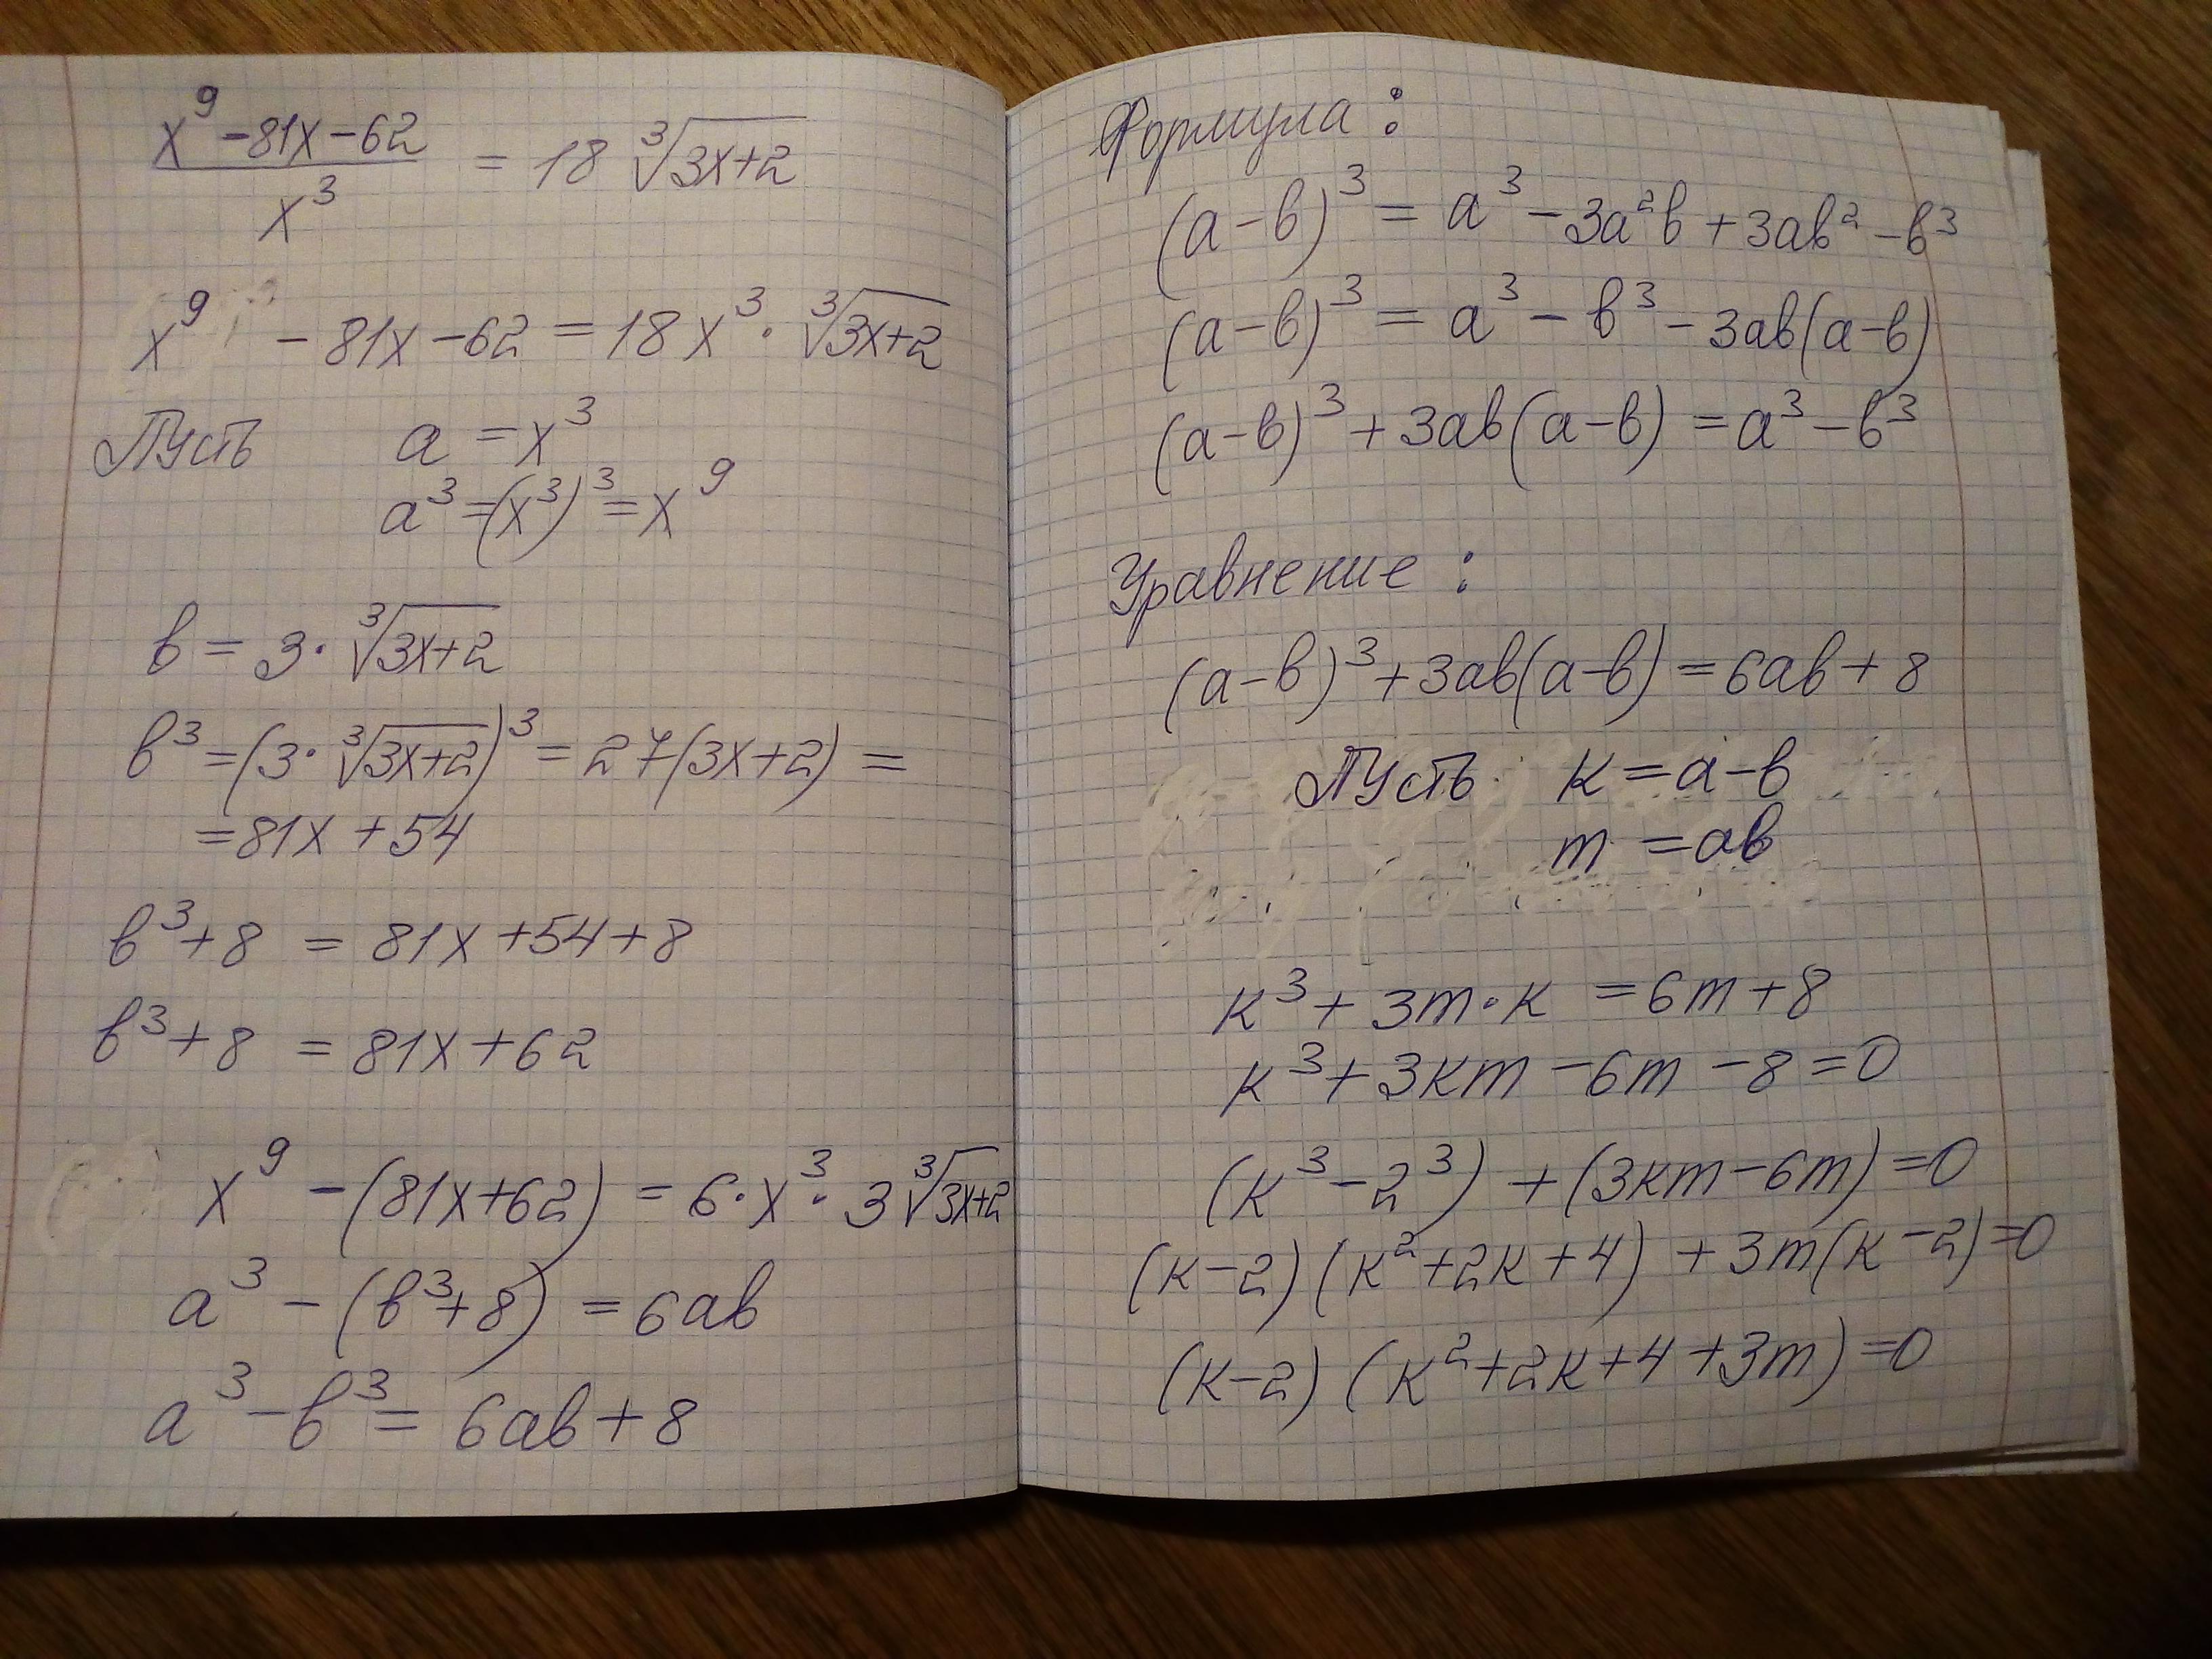 x⁹ – 81x – 62 / x³ = 18 ∛(3x+2)
x⁹ – 81x – 62 = 18x³ · ∛(3x+2)
Пусть a = x³
a³ = (x³)³ = x⁹
в = 3 · ∛(3x+2)
в³ = (3 · ∛(3x+2))³ = 27(3x+2) =
= 81x + 54
в³ + 8 = 81x + 54 + 8
в³ + 8 = 81x + 62
x⁹ – (81x+62) = 6 · x³ · 3 ∛(3x+2)
a³ – (в³+8) = 6aв
a³ – в³ = 6aв + 8
Формула :
(a–в)³ = a³ – 3a²в + 3aв² – в³
(a–в)³ = a³ – в³ – 3aв(a–в)
(a–в)³ + 3aв(a–в) = a³ – в³
Уравнение :
(a–в)³ + 3aв(a–в) = 6aв + 8
Пусть к = a–в
m = aв
к³ + 3m · к = 6m + 8
к³ + 3кm – 6m – 8 = 0
(к³ – 2³) + (3кm – 6m) = 0
(к–2)(к² + 2к + 4) + 3m(к–2) = 0
(к–2)(к² + 2к + 4 + 3m) = 0